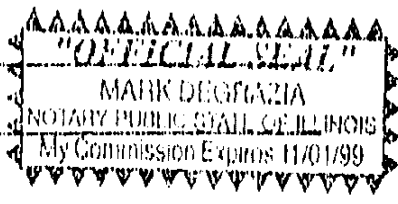 "OFFICIAL SEAL"
MARK DEGRAZIA
NOTARY PUBLIC STATE OF ILLINOIS
My Commission Expires 11/01/99